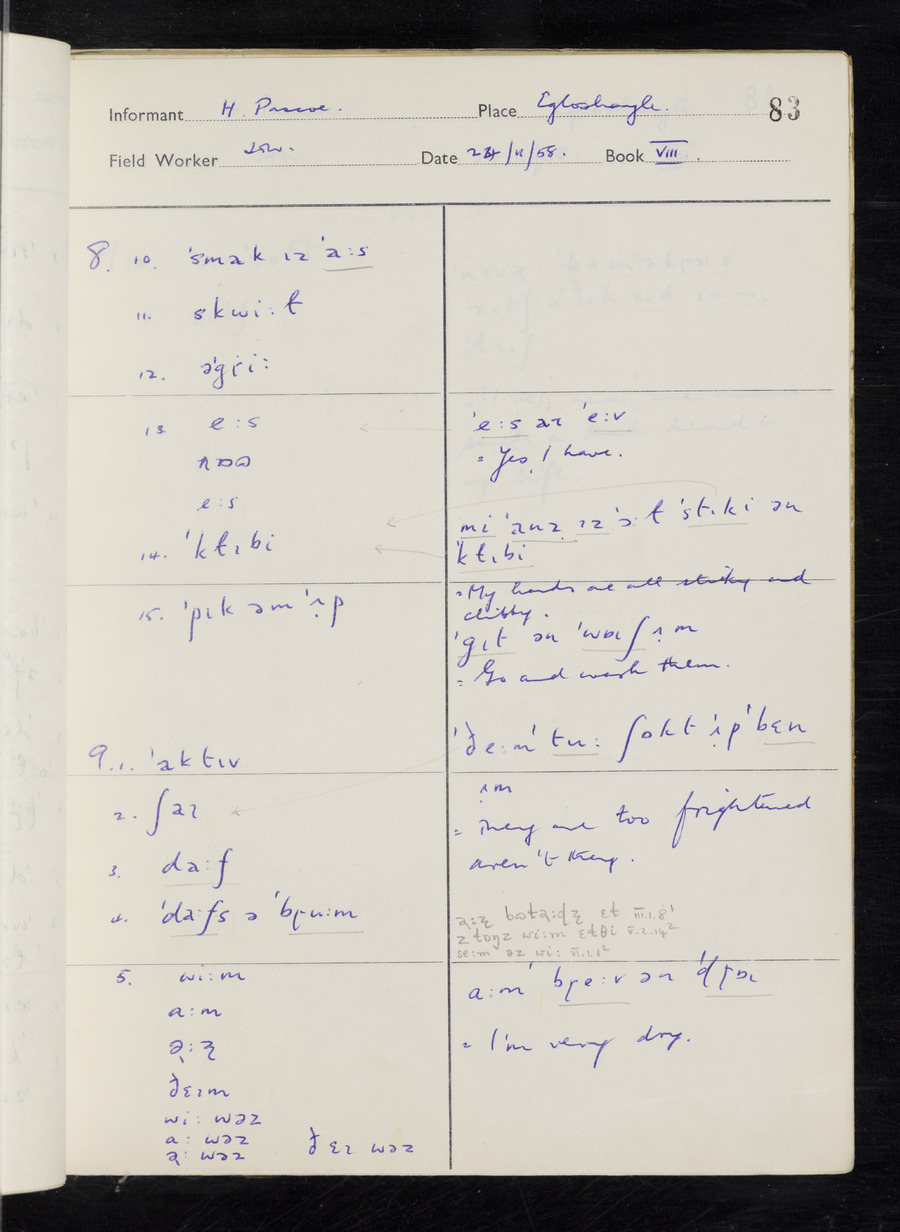 Informant H. Pascoe. Place Egloshayle. 83
Field Worker Date 24/11/58. Book VIII.
8. 10. ˈsmak ɪz ˈa:s
11. skwi:t
12. əˈgɹi:
13. e:s
nɒʊ
e:s
14. ˈklɪbi
15. ˈpɪk əm ˈʌp
9.1. ˈaktɪv
2. ʃaɪ
3. da:f
4. ˈda:fs ə ˈbɽu:m
5. wi:m
a:m
ʂ:ɽ
ðɛɪm
wi: wəz
a: wəz ðɛɪ wəz
ʂ: wəz
ˈe:s aɪ ˈe:v
= Yes, I have.
mi ˈanz ɪz ˈɔ:l ˈstɪki ən
ˈklɪbi
= My hands are all sticky and
clibby.
ˈgɪt ən ˈwɒɪʃ əm
= Go and wash them.
ˈðe:mˈ tu: ʃɒkt ʌpˈ bɛn
əm
= They are too frightened
aren't they.
wi:m ɛtθi V.2.14²
se:m əz wi: VI.1.6²
a:mˈ bɽe:v ən ˈdɽɒɪ
= I'm very dry.